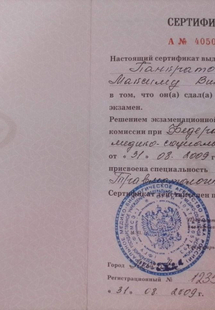 СЕРТИФИ
А № 4050
Настоящий сертификат выд
Панкрато
Максиму Ви
в том, что он(а) сдал(а)
экзамен.
Решением экзаменационно
комиссии при Федера
медико-социаль
от «31» 08 2009г
присвоена специальность
Травматологи
Сертификат действителен
Город
Регистрационный № 1233
«31» 08. 2009г.